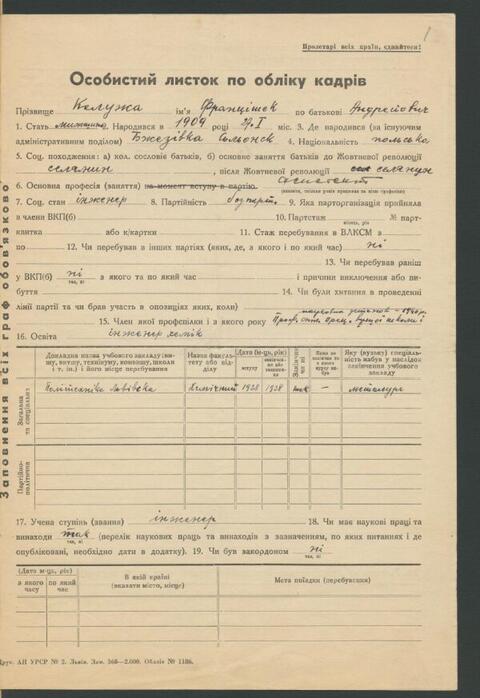 1
Пролетарі всіх країн, єднайтеся!
Особистий листок по обліку кадрів
Прізвище Калужа ім'я Францішек по батькові Андрейович
1. Стать мужчина Народився в 1909 році 27.I міс. 3. Де народився (за існуючим
адміністративним поділом) Бжезівка Сяноцк 4. Національність польська
5. Соц. походження: а) кол. сословіє батьків, б) основне заняття батьків до Жовтневої революції
селянин , після Жовтневої революції селянин
6. Основна професія (заняття) на момент вступу в партію Асистент
7. Соц. стан інженер 8. Партійність безпарт. 9. Яка парторганізація прийняла
в члени ВКП(б) 10. Партстаж місяць, рік № парт-
квитка або к/картки 11. Стаж перебування в ВЛКСМ з
по 12. Чи перебував в інших партіях (яких, де, з якого і по який час) ні
13. Чи перебував раніш
у ВКП(б) ні так, ні з якого та по який час і причини виключення або ви-
буття 14. Чи були хитання в проведенні
лінії партії та чи брав участь в опозиціях яких, коли)
15. Член якої профспілки і з якого року Профспілк. прац. вищої школи і наукових установ – 1940 р.
16. Освіта інженер хемік
Заповнення всіх граф обов'язково
Докладна назва учбового закладу (ви-
шу, втушу, технікуму, комвишу, школи
і т. ін.) і його місце перебування
Назва факуль-
тету або від-
ділу
Дата (м-ць, рік)
вступу
закінчен-
ня або
Закінчив
чи ні
Яку (вузьку) спеціаль-
ність набув в наслідок
закінчення учбового
закладу
Загальна
та спеціальна
Політехніка Львівська Хемічний 1928 1938 так — металург
Партійно-
політична
17. Учена ступінь (звання) інженер 18. Чи має наукові праці та
винаходи так так, ні (перелік наукових праць та винаходів з зазначенням, по яких питаннях і де
опубліковані, необхідно дати в додатку). 19. Чи був закордоном ні так, ні
(Дата м-ць, рік)
з якого
часу
по який
час
В якій країні
(вказати місто, місце)
Мета поїздки (перебування)
Друк. АН УРСР № 2. Львів. Зам. 368—2.000. Обліт № 1186.